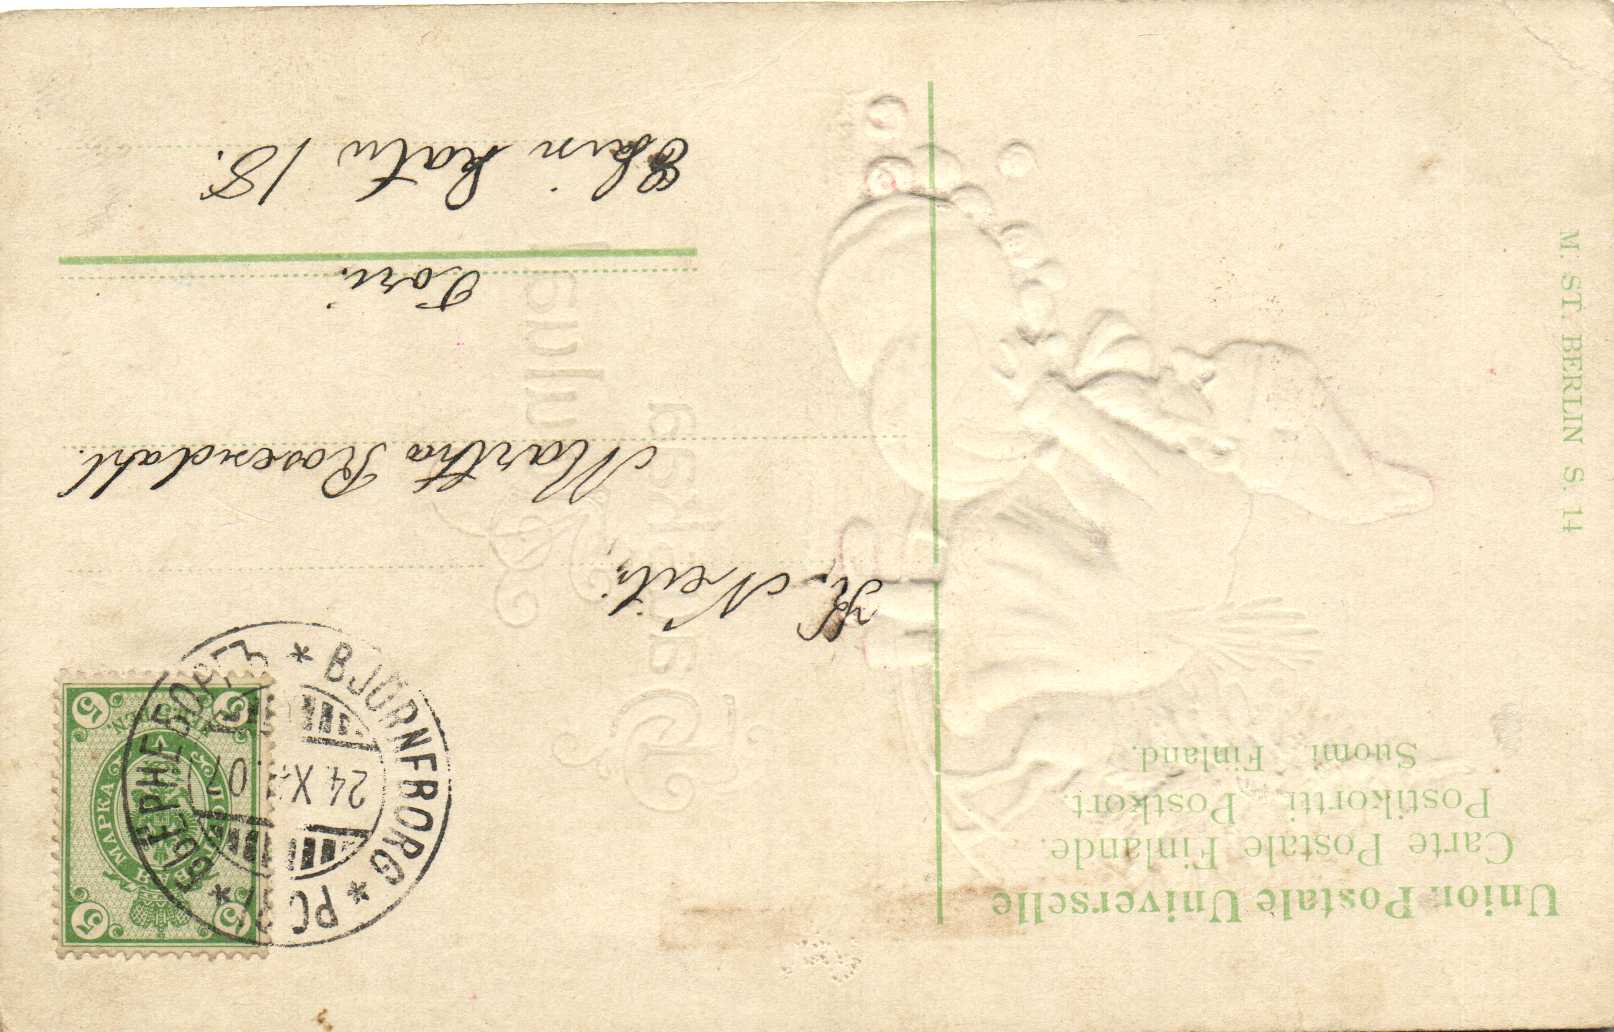 Union Postale Universelle
Carte Postale Finlande.
Postikortti Postkort.
Suomi Finland.
M. ST. BERLIN S. 14
N. Neiti,
Martha Rosendahl.
Pori.
katu 18.
BJÖRNEBORG
24 X 07
БЬЕРНЕБОРГЪ
5 5
5 5
МАРКА